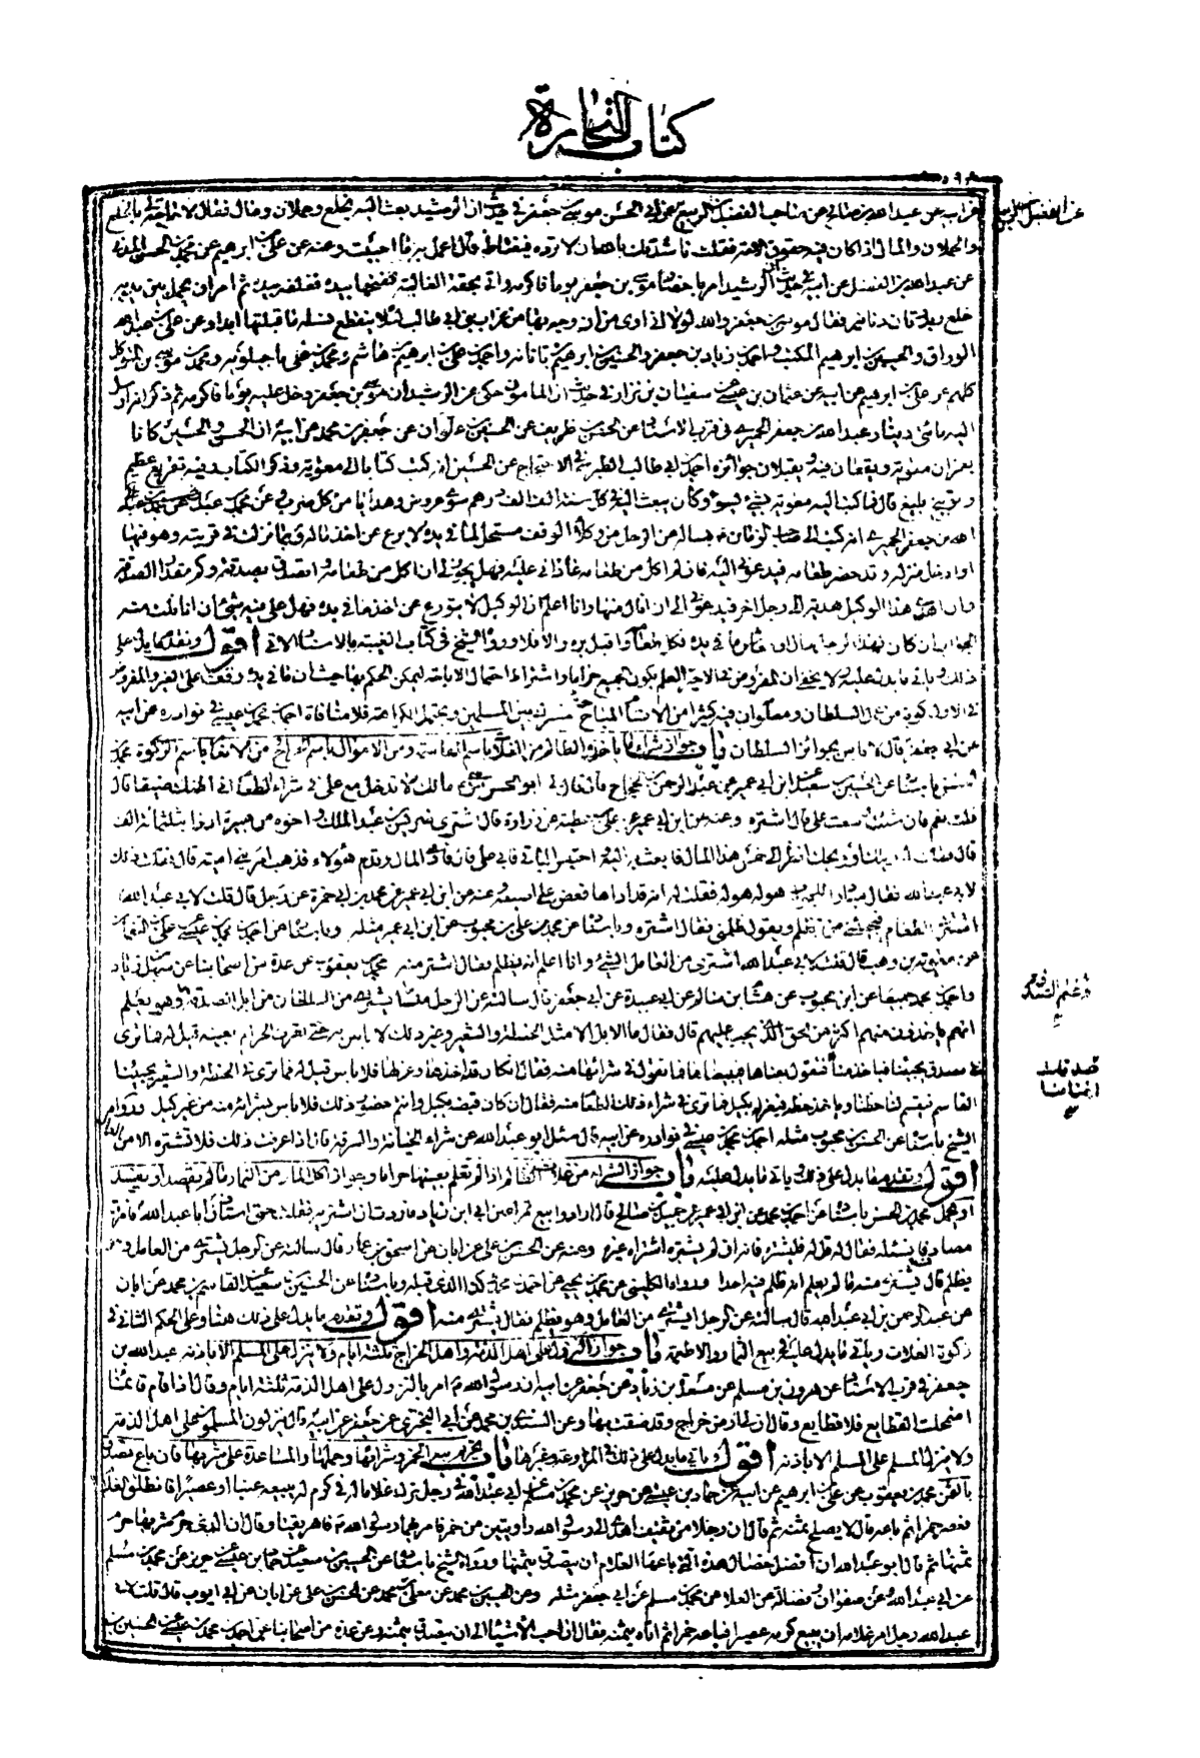 كتاب التجارة
عن عبيد الله بن صالح عن صاحب الفضل بن الربيع عن أبي الحسن موسى بن جعفر في حديث ان الرشيد بعث اليه بخلع وحملان ومال فقال لا حاجة لي بالخلع
والحملان والمال اذا كان فيه حقوق الامة فقلت ناشدتك بالله ان لا ترده فيغتاظ قال اعمل به ما احببت وعنه عن علي بن ابرهيم عن محمد بن الحسن المدني
عن عبد الله بن الفضل عن ابيه في حديث ان الرشيد امر باحضار موسى بن جعفر يوما فاكرمه واتى بحقة الغالية ففتحها بيده فغلفه بيده ثم امر ان يحمل بين يديه
خلع وبدرتان دنانير فقال موسى بن جعفر والله لولا اني ارى من ان وجه بها من عزاب بني أبي طالب لئلا ينقطع نسله ما قبلتها ابدا وعن علي بن عبد الله
الوراق والحسين بن ابرهيم المكتب واحمد بن زياد بن جعفر والحسين بن ابرهيم بن ناتانه واحمد بن علي بن ابرهيم بن هاشم ومحمد بن علي ماجيلويه ومحمد بن موسى بن المتوكل
كلهم عن علي بن ابرهيم عن ابيه عن عثمان بن عيسى عن سفيان بن نزار في حديث ان المامون حكى عن الرشيد ان موسى بن جعفر دخل عليه يوما فاكرمه ثم ذكر انه ارسل
اليه مائتي دينار عبد الله بن جعفر الحميري في قرب الاسناد عن الحسن بن ظريف عن الحسين بن علوان عن جعفر بن محمد عن ابيه ان الحسن والحسين كانا
يغمزان معوية ويقعان فيه ويقبلان جوائزه احمد بن أبي طالب الطبرسي في الاحتجاج عن الحسين انه كتب كتابا الى معوية وذكر الكتاب وفيه تقريع عظيم
وتوبيخ بليغ قال فما كتب اليه معوية بشيء يسوؤه وكان يبعث اليه في كل سنة الف الف درهم سوى عروض وهدايا من كل ضرب وعن محمد بن عبد الله
بن جعفر الحميري انه كتب الى صاحب الزمان يساله عن الرجل من وكلاء الوقف مستحل لما في يده لا يرع عن اخذ ماله ربما نزلت في قريته وهو فيها
او ادخل منزله وقد حضر طعامه فيدعوني اليه فان لم اكل من طعامه عاداني عليه فهل يجوز لي ان اكل من طعامه واتصدق بصدقة وكم مقدار الصدقة
وان اهدى هذا الوكيل هدية الى رجل اخر فيدعوني الى ان انال منها وانا اعلم ان الوكيل لا يتورع عن اخذ ما في يده فهل علي فيه شيء ان انا نلت منه
الجواب ان كان لهذا الرجل مال او معاش غير ما في يده فكل طعامه واقبل بره والا فلا ورواه الشيخ في كتاب الغيبة بالاسناد الاتي اقول وتقدم ما يدل على
ذلك وياتي ما يدل عليه ولا يخفى ان المفروض في الاحاديث
عن أبي جعفر قال لا باس بجوائز السلطان باب جواز شراء ما ياخذه الظالم من الغلات باسم المقاسمة ومن الاموال باسم الخراج ومن الانعام باسم الزكوة محمد
بن الحسن باسناده عن الحسين بن سعيد عن ابن أبي عمير عن عبد الرحمن بن الحجاج قال قال لي ابو الحسن موسى مالك لا تدخل مع علي في شراء الطعام اني اظنك ضيقا قال
قلت نعم فان شئت وسعت علي قال اشتره وعنه عن ابن أبي عمير عن علي بن عطية عن زرارة قال اشترى ضريس بن عبد الملك واخوه من هبيرة ارزا بثلثمائة الف
قال فقلت له ويلك او ويحك انظر الى خمس هذا المال فابعث به اليه واحتبس الباقي فابى علي قال فادى المال وقدم هؤلاء فذهب امر بني امية قال فقلت ذلك
لابي عبد الله فقال مبادرا للجواب هو له هو له فقلت له انه قد اداها فعض على اصبعه وعنه عن ابن أبي عمير عن محمد بن أبي حمزة عن رجل قال قلت لابي عبد الله
اشتري الطعام فيجيئني من يتظلم ويقول ظلمني فقال اشتره وباسناده عن محمد بن علي بن محبوب عن ابن أبي عمير مثله وباسناده عن احمد بن محمد بن عيسى عن علي بن النعمان
عن معوية بن وهب قال قلت لابي عبد الله اشتري من العامل الشيء وانا اعلم انه يظلم فقال اشتر منه محمد بن يعقوب عن عدة من اصحابنا عن سهل بن زياد
واحمد بن محمد جميعا عن ابن محبوب عن هشام بن سالم عن أبي عبيدة عن أبي جعفر قال سالته عن الرجل منا يشتري من السلطان من ابل الصدقة وهو يعلم
انهم ياخذون منهم اكثر من الحق الذي يجب عليهم قال فقال ما الابل الا مثل الحنطة والشعير وغير ذلك لا باس به حتى تعرف الحرام بعينه قيل له فما ترى
في مصدق يجيئنا فياخذ صدقات اغنامنا فنقول بعناها فيبيعناها فما تقول في شرائها منه فقال ان كان قد اخذها وعزلها فلا باس قيل له فما ترى في الحنطة والشعير يجيئنا
القاسم فيقسم لنا حظنا وياخذ حظه فيعزله بكيل فما ترى في شراء ذلك الطعام منه فقال ان كان قبضه بكيل وانتم حضور ذلك فلا باس بشرائه منه من غير كيل ورواه
الشيخ باسناده عن الحسن بن محبوب مثله احمد بن محمد بن عيسى في نوادره عن ابيه قال سئل ابو عبد الله عن شراء الخيانة والسرقة قال اذا عرفت ذلك فلا تشتره الا من العمال
اقول وتقدم ما يدل على ذلك وياتي ما يدل عليه باب جواز الشراء من غلات الظالم اذا لم تعلم بعينها حراما وجواز اكل المار من الثمار ما لم يقصد او يفسد
او يحمل محمد بن الحسن باسناده عن احمد بن محمد عن ابن أبي عمير عن جميل بن صالح قال ارادوا بيع تمر عين أبي ابن زياد فاردت ان اشتريه فقلت حتى استاذن ابا عبد الله فامرت
مصادف يسئله فقال له قل له فليشتره فانه ان لم يشتره اشتراه غيره وعنه عن الحسن بن علي عن ابان عن اسحق بن عمار قال سالته عن الرجل يشتري من العامل وهو
يظلم قال يشتري منه ما لم يعلم انه ظلم فيه احدا
عن عبد الرحمن بن أبي عبد الله قال سالته عن الرجل ايشتري من العامل وهو يظلم فقال يشتري منه اقول وتقدم ما يدل على ذلك هنا وعلى الحكم الثاني في
زكوة الغلات وياتي ما يدل عليه في بيع الثمار والاطعمة باب جواز النزول على اهل الذمة واهل الخراج ثلثة ايام ولا ينزل على المسلم الا باذنه عبد الله بن
جعفر في قرب الاسناد عن هرون بن مسلم عن مسعدة بن زياد عن جعفر عن ابيه ان رسول الله امر بالنزول على اهل الذمة ثلثة ايام وقال اذا قام قائمنا
اضمحلت القطايع فلا قطايع وقال ان لي ارض خراج وقد ضقت بها وعن السندي بن محمد عن أبي البختري عن جعفر عن ابيه قال ينزل المسلمون على اهل الذمة
ولا ينزل المسلم على المسلم الا باذنه اقول وياتي ما يدل على ذلك في المزارعة وغيرها باب تحريم بيع الخمر وشرائها وحملها والمساعدة على شربها فان باع تصدق
بالثمن محمد بن يعقوب عن علي بن ابرهيم عن ابيه عن حماد بن عيسى عن حريز عن محمد بن مسلم عن أبي عبد الله في رجل ترك غلاما له في كرم له يبيعه عنبا او عصيرا فانطلق الغلام
فعصر خمرا ثم باعه قال لا يصلح ثمنه ثم قال ان رجلا من ثقيف اهدى الى رسول الله راويتين من خمر فامر بهما رسول الله فاهريقتا وقال ان الذي حرم شربها حرم
ثمنها ثم قال ابو عبد الله ان افضل خصال هذه التي باعها الغلام ان يتصدق بثمنها ورواه الشيخ باسناده عن الحسين بن سعيد عن حماد بن عيسى عن حريز عن محمد بن مسلم
عن أبي عبد الله وعن صفوان وفضالة عن العلا عن محمد بن مسلم عن أبي جعفر مثله وعن الحسين بن محمد عن معلى بن محمد عن الحسن بن علي عن ابان عن أبي ايوب قال قلت لابي
عبد الله رجل امر غلامه ان يبيع كرمه عصيرا فباعه خمرا ثم اتاه بثمنه فقال ان احب الاشياء الي ان يتصدق بثمنه وعن عدة من اصحابنا عن احمد بن محمد بن عيسى عن الحسين بن
عن الفضل بن الربيع
صدقات
اغنامنا